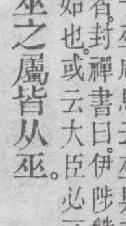 者。封禪書曰。伊陟
如也。或云大臣必
巫之屬皆从巫。